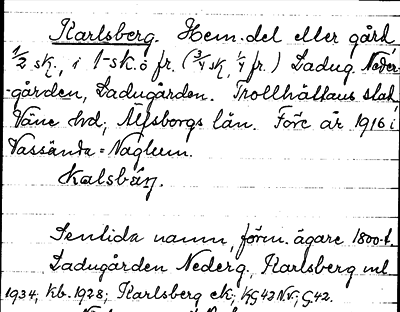 Karlsberg. Hem.del eller gård
1/2 sk., i 1 sk. ö fr. (3/4 sk, 1/4 fr.) Ladug. Neder-
-gården, Ladugården. Trollhättans stad
Väne hd, Älvsborgs län. Före år 1916 i
Vassända=Naglum.
Kalsbärj.
Sentida namn, förm. ägare 1800-t.
Ladugården Nederg., Karlsberg ml
1934, kb. 1928; Karlsberg ek; KG42NV; G42.